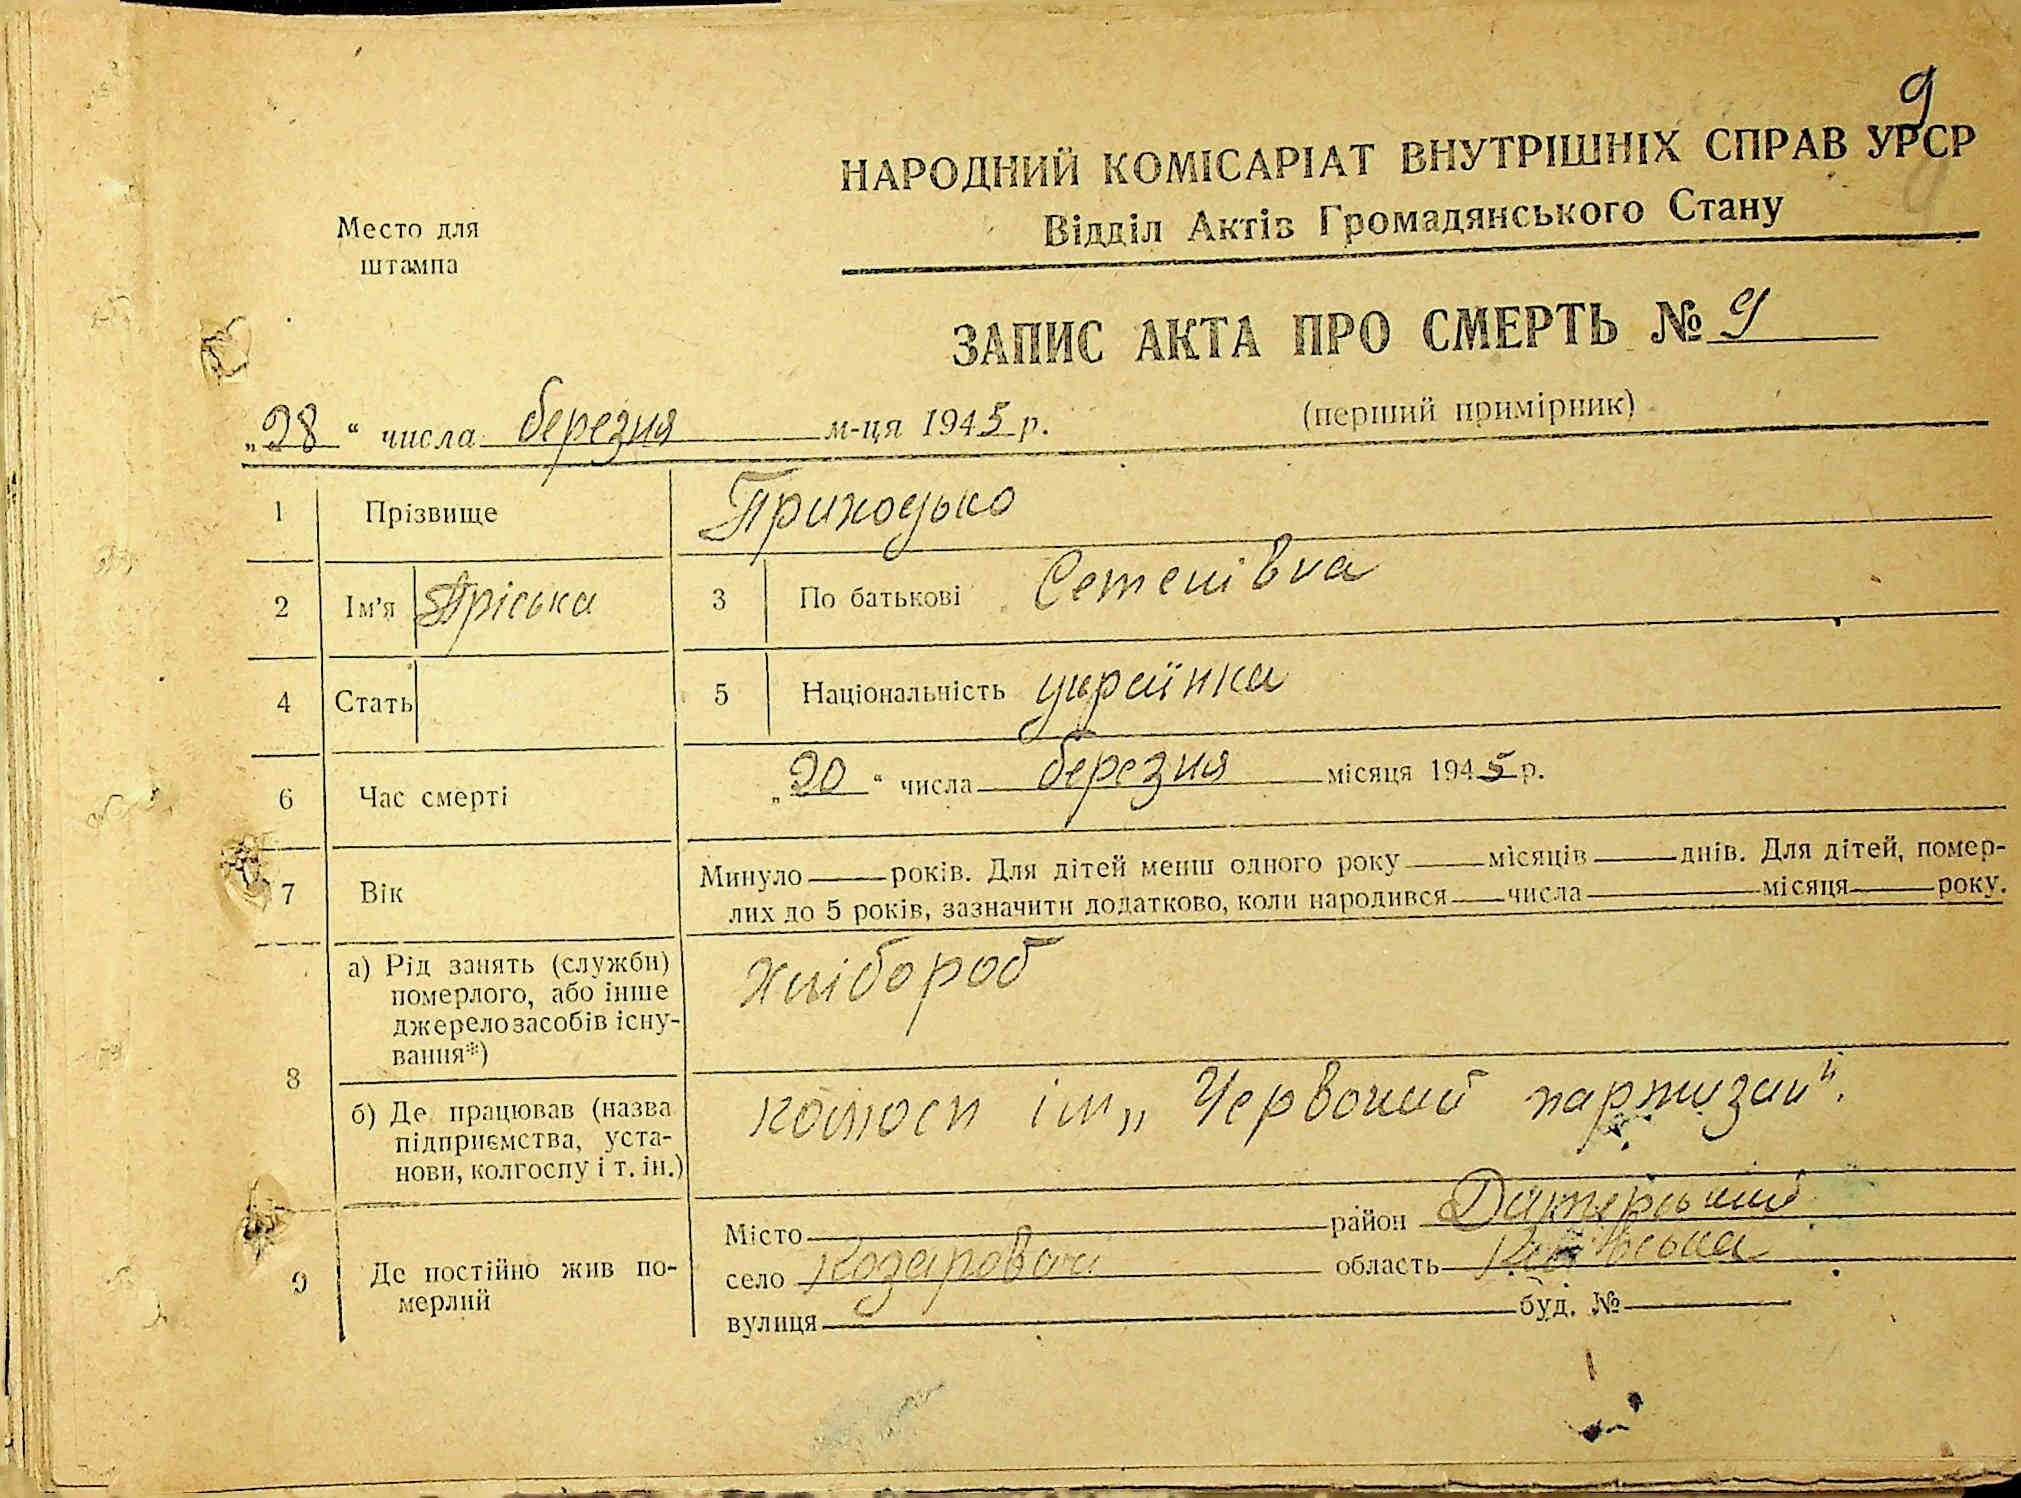 9
НАРОДНИЙ КОМІСАРІАТ ВНУТРІШНІХ СПРАВ УРСР
Відділ Актів Громадянського Стану
Место для
штампа
ЗАПИС АКТА ПРО СМЕРТЬ № 9
(перший примірник)
„28“ числа березня м-ця 1945 р.
1 Прізвище Приходько
2 Ім'я Пріська 3 По батькові Семенівна
4 Стать 5 Національність українка
6 Час смерті „20“ числа березня місяця 1945 р.
7 Вік Минуло років. Для дітей менш одного року місяців днів. Для дітей, помер-
лих до 5 років, зазначити додатково, коли народився числа місяця року.
8 а) Рід занять (служби)
померлого, або інше
джерело засобів існу-
вання*)
хлібороб
б) Де працював (назва
підприємства, уста-
нови, колгоспу і т. ін.)
колгосп ім „Червоний партизан".
9 Де постійно жив по-
мерлий
Місто район Димерський
село Козаровичі область Київська
вулиця буд. №